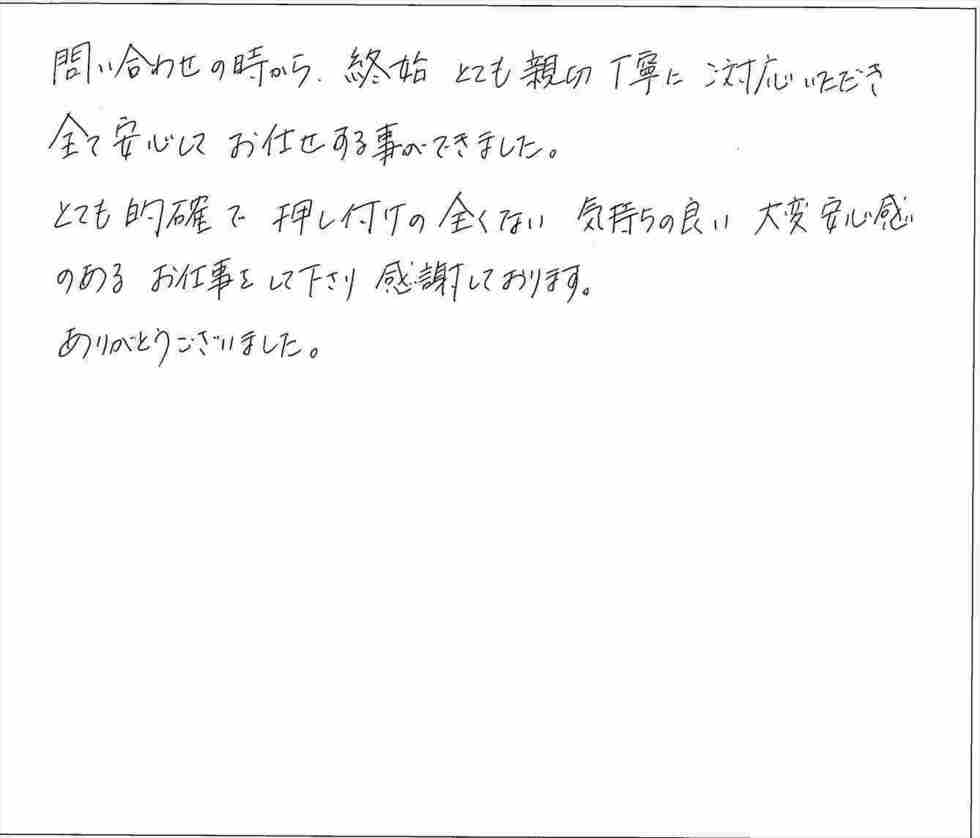 問い合わせの時から、終始 とても親切丁寧に ご対応いただき
全て安心して お仕せする事ができました。
とても的確で 押し付けの全くない 気持ちの良い 大変安心感
のある お仕事をして下さり 感謝しております。
ありがとうございました。